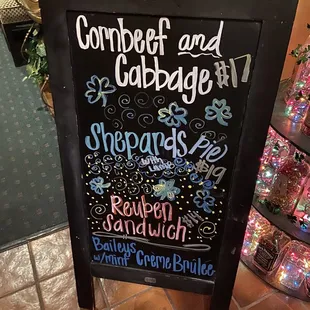 Cornbeef and
Cabbage $17
Shepards Pie
with Lamb
$19
Reuben
Sandwich
Baileys
w/mint Creme Brulee